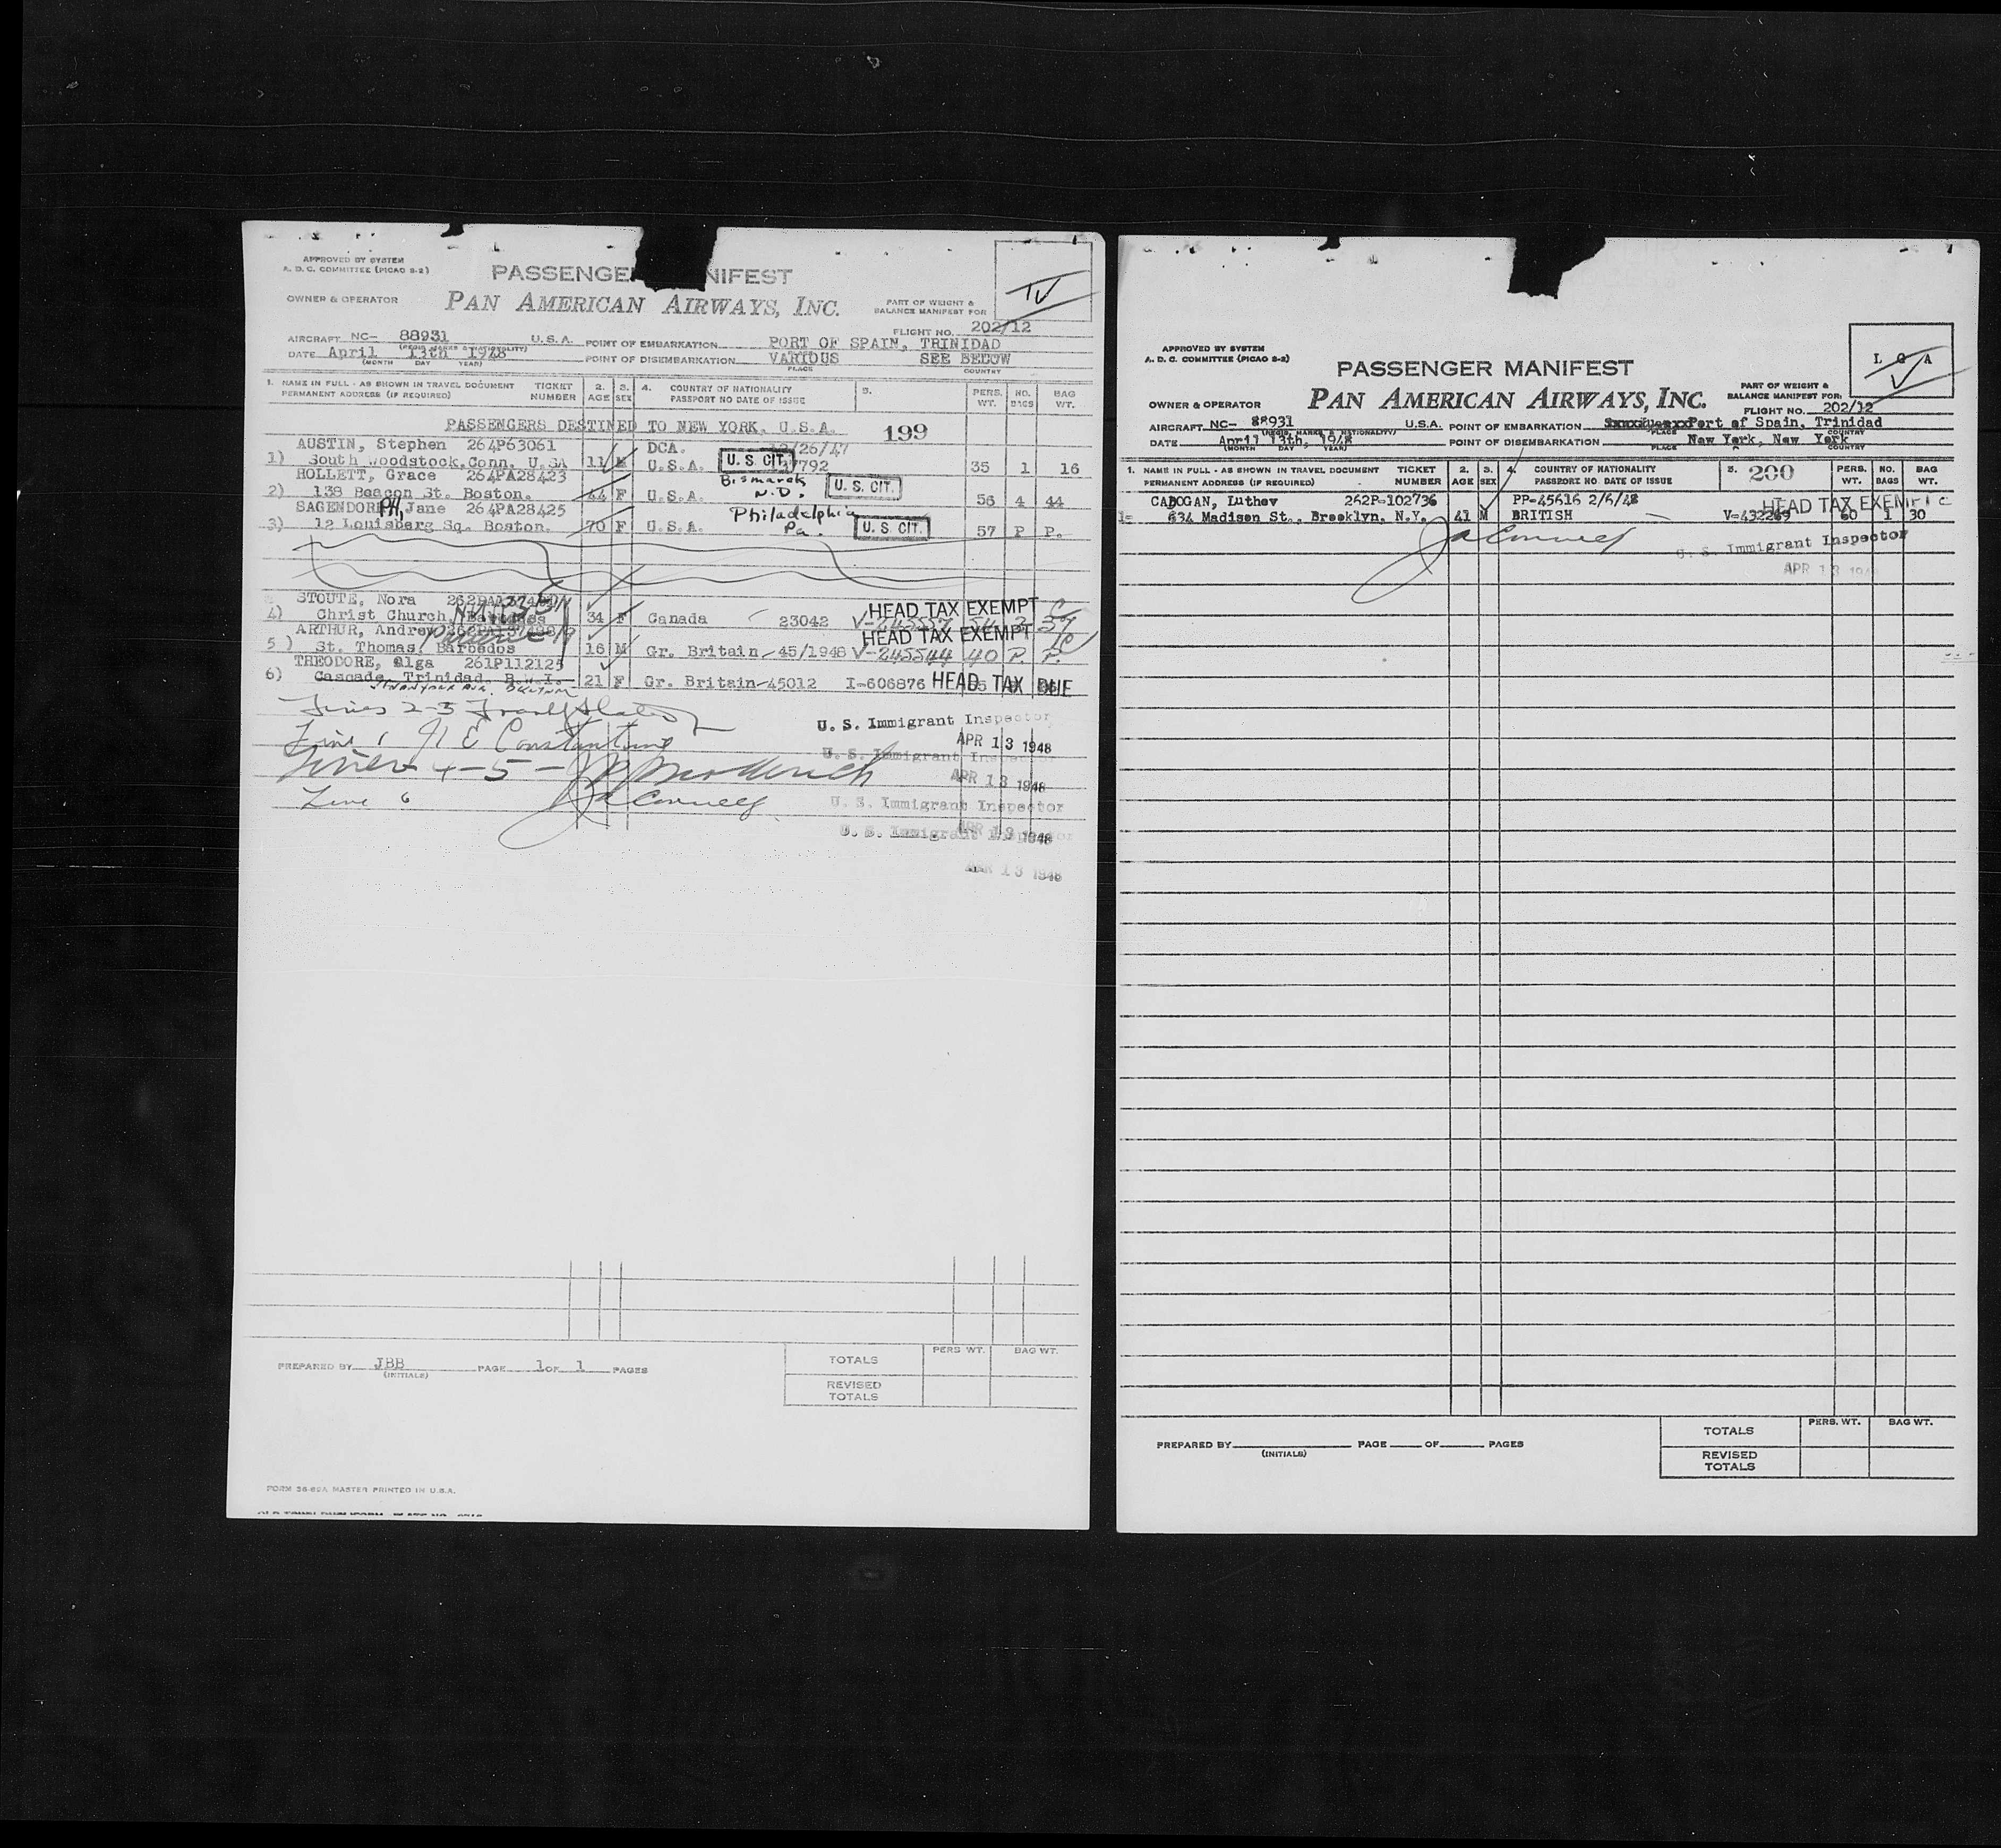 APPROVED BY SYSTEM
A. D. C. COMMITTEE (PICAO S-2)
PASSENGER NIFEST
OWNER & OPERATOR
PAN AMERICAN AIRWAYS, INC.
PART OF WEIGHT &
BALANCE MANIFEST FOR
FLIGHT NO. 202/12
AIRCRAFT NC- 88931 U.S.A.
(REGIS. MARKS & NATIONALITY)
POINT OF EMBARKATION PORT OF SPAIN, TRINIDAD
DATE April 13th 1948
(MONTH DAY YEAR)
POINT OF DISEMBARKATION VARIOUS SEE BELOW
PLACE COUNTRY
1. NAME IN FULL - AS SHOWN IN TRAVEL DOCUMENT TICKET 2. 3. 4. COUNTRY OF NATIONALITY 5. PERS. NO. BAG
PERMANENT ADDRESS (IF REQUIRED) NUMBER AGE SEX PASSPORT NO DATE OF ISSUE WT. BAGS WT.
PASSENGERS DESTINED TO NEW YORK, U.S.A. 199
AUSTIN, Stephen 264P63061 DCA. /26/47
1) South Woodstock, Conn. U.SA 11 M U.S.A. U. S. CIT. 7792 35 1 16
ROLLETT, Grace 264PA28423 Bismarck
2) 138 Beacon St. Boston. 44 F U.S.A. N.D. U. S. CIT. 56 4 44
SAGENDORPH, Jane 264PA28425 Philadelphia
3) 12 Louisberg Sq. Boston. 70 F U.S.A. Pa. U. S. CIT. 57 P P.
STOUTE, Nora HEAD TAX EXEMPT
4) Christ Church, 34 F Canada 23042
ARTHUR, Andrew HEAD TAX EXEMPT
5) St. Thomas, Barbados 16 M Gr. Britain-45/1948 V-245544 40 P. P.
THEODORE, Olga 261P112125
6) Cascade, Trinidad, B.W.I. 21 F Gr. Britain-45012 I-606876 HEAD TAX DUE
Lines 2-3
U. S. Immigrant Inspector
Line 1 E Constantine
APR 13 1948
U. S. Immigrant Inspector
Lines 4-5-
APR 13 1948
Line 6 Ja Connelly
U. S. Immigrant Inspector
APR 13 1948
U. S. Immigrant Inspector
APR 13 1948
TOTALS
PERS WT. BAG WT.
REVISED
TOTALS
PREPARED BY JBB PAGE 1 OF 1 PAGES
(INITIALS)
FORM 36-62A MASTER PRINTED IN U.S.A.
APPROVED BY SYSTEM
A. D. C. COMMITTEE (PICAO S-2)
L G A
PASSENGER MANIFEST
OWNER & OPERATOR
PAN AMERICAN AIRWAYS, INC.
PART OF WEIGHT &
BALANCE MANIFEST FOR:
FLIGHT NO. 202/12
AIRCRAFT NC- 88931 U.S.A.
(REGIS. MARKS & NATIONALITY)
POINT OF EMBARKATION Port of Spain, Trinidad
PLACE COUNTRY
DATE April 13th, 1948
(MONTH DAY YEAR)
POINT OF DISEMBARKATION New York, New York
PLACE COUNTRY
1. NAME IN FULL - AS SHOWN IN TRAVEL DOCUMENT TICKET 2. 3. 4. COUNTRY OF NATIONALITY 5. 200 PERS. NO. BAG
PERMANENT ADDRESS (IF REQUIRED) NUMBER AGE SEX PASSPORT NO. DATE OF ISSUE WT. BAGS WT.
CADOGAN, Luthev 262P-102736 PP-45616 2/6/48 HEAD TAX EXEMPT C
1- 634 Madison St., Brooklyn, N.Y. 41 M BRITISH V-432269 60 1 30
Ja Connelly
U. S. Immigrant Inspector
APR 13 1948
TOTALS
PERS. WT. BAG WT.
REVISED
TOTALS
PREPARED BY PAGE OF PAGES
(INITIALS)